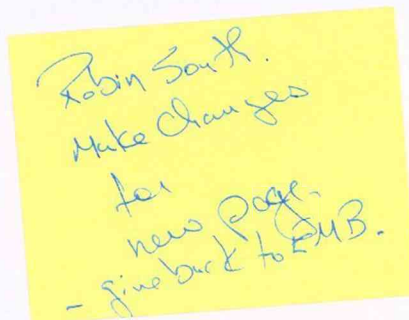 Robin South.
Make Changes
for
new page.
- give back to EMB.